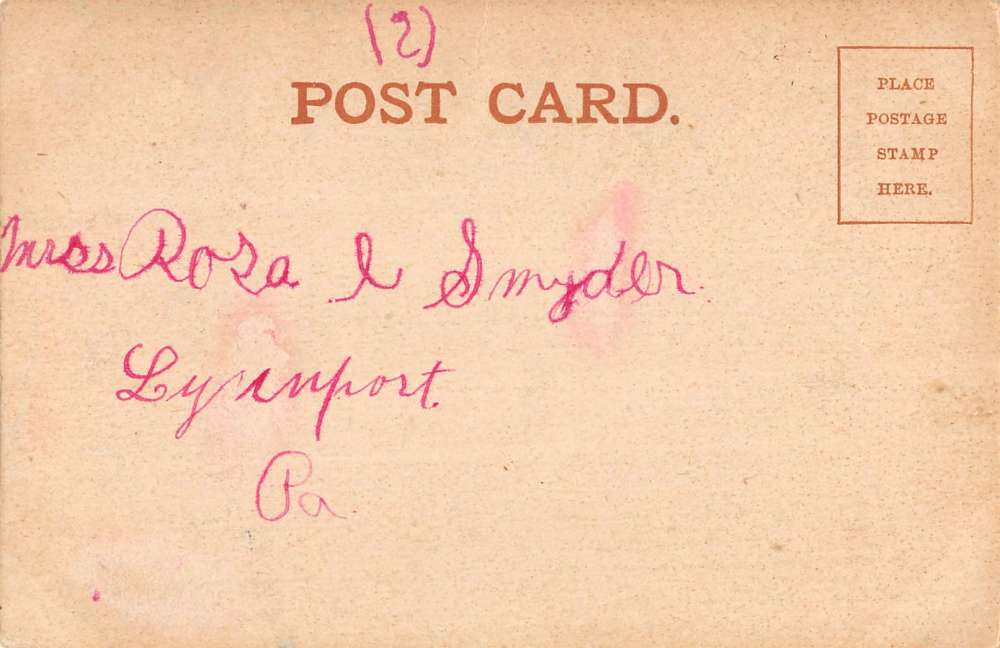 (2)
POST CARD.
PLACE
POSTAGE
STAMP
HERE.
Miss Rosa I Smyder.
Lynnport.
Pa.